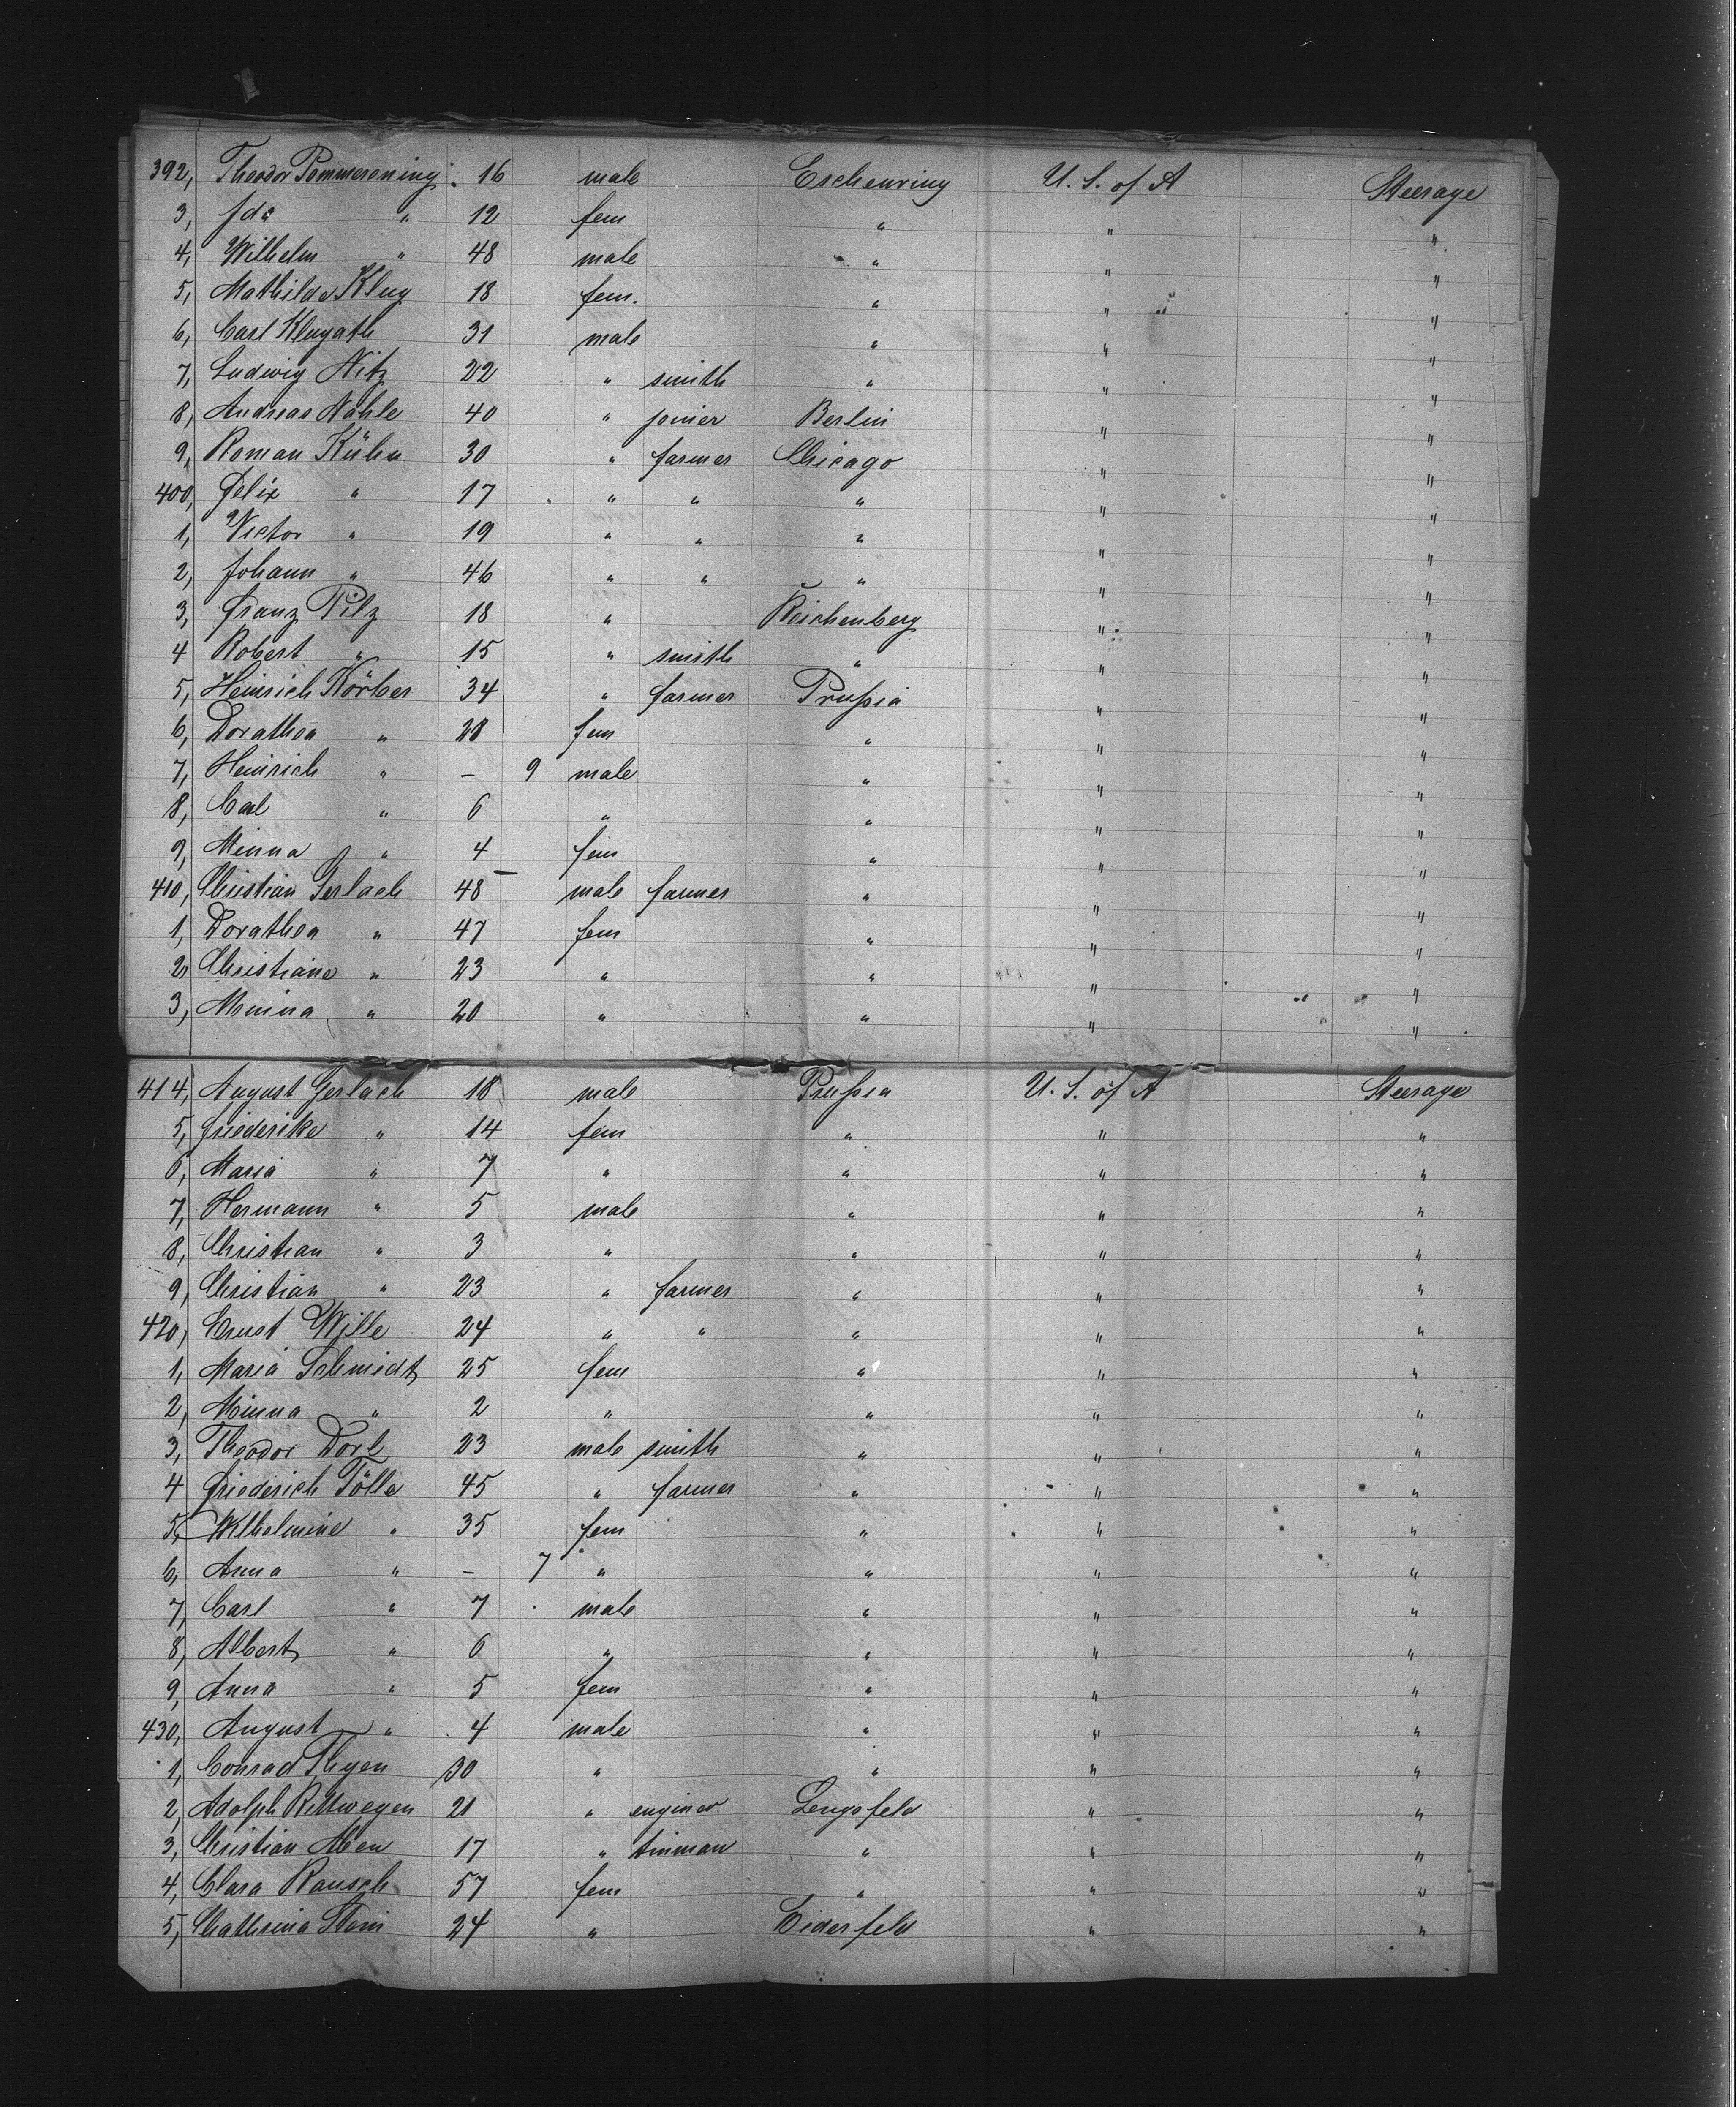 392, Theodor Pommerening 16 male Eschenring U. S. of A Steerage
3, Ida " 12 fem " " "
4, Wilhelm " 48 male " " "
5, Mathilde Klug 18 fem. " " "
6, Carl Klugath 31 male " " "
7, Ludwig Nitz 22 " smith " " "
8, Andreas Nahle 40 " joiner Berlin " "
9, Roman Kühn 30 " farmer Chicago " "
400, Felix " 17 " " " " "
1, Victor " 19 " " " " "
2, Johann " 46 " " " " "
3, Franz Pilz 18 " Reichenberg " "
4 Robert " 15 " smith " " "
5, Heinrich Körber 34 " farmer Prußia " "
6, Dorathea " 28 fem " " "
7, Heinrich " – 9 male " " "
8, Carl " 6 " " " "
9, Minna " 4 fem " " "
410, Christian Gerlach 48 male farmer " " "
1, Dorathea " 47 fem " " "
2, Christiane " 23 " " " "
3, Minna " 20 " " " "
414, August Gerlach 18 male Prußia U. S. of A Steerage
5, Friederike " 14 fem " " "
6, Maria " 7 " " " "
7, Hermann " 5 male " " "
8, Christian " 3 " " " "
9, Christian " 23 " farmer " " "
420, Ernst Wille 24 " " " " "
1, Maria Schmidt 25 fem " " "
2, Minna " 2 " " " "
3, Theodor Dorl 23 male smith " " "
4 Friederich Tölle 45 " farmer " " "
5, Wilhelmine " 35 fem " " "
6, Anna " – 7 " " " "
7, Carl " 7 male " " "
8, Albert " 6 " " " "
9, Anna " 5 fem " " "
430, August " 4 male " " "
1, Conrad Thyen 30 " " " "
2, Adolph Rettwegen 21 " engineer Lengsfeld " "
3, Christian Aben 17 " tinman " " "
4, Clara Rausch 57 fem " " "
5, Catherina Stein 24 " Eiderfeld " "